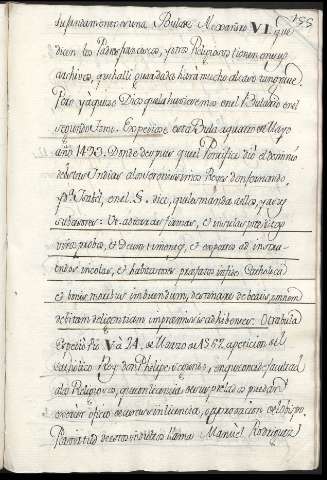 155
su fundamento es una Bula de Alexandro VI que
dicen los Padres franciscos, y otros Religiosos tienen en sus
archivos, que halli guardados hará mucho al caso tenerla.
Pero ya quiso Dios que la huviesemos en el Bulario en el
segundo tomo. Expidiose esta Bula a quatro de Mayo
año 1493. Donde despues que el Pontifice dió el dominio
de las Indias a los Serenissimos Reyes don fernando,
y Dª Isabel, en el §. dice, que les manda a ellos, y a sus
subcesores: Ut ad terras firmas, et insulas predictas
viros probos, et Deum timentes, et expertos ad instru-
endos incolas, et habitatores prefatos in fide Catholica
et bonis moribus imbuendum, destinare debeatis, omnem
debitam diligentiam in premissis adhibentes. Otra bula
expedió Pio V à 24. de Marzo de 1567. a peticion del
Catholico Rey don Phelipe segundo, en que concede facultad
a los Religiosos, que con licencia de sus prelados puedan
exercer oficio de curas sin licencia, o aprobacion del Obispo.
Manuel Rodriguez